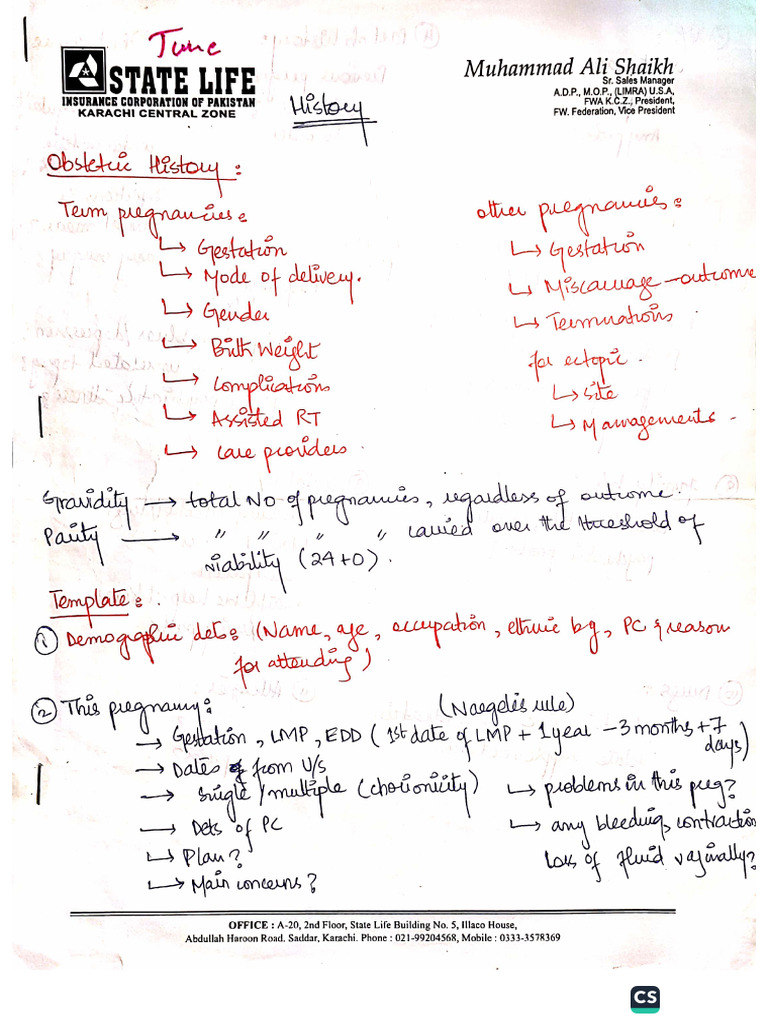 Tune
STATE LIFE
INSURANCE CORPORATION OF PAKISTAN
KARACHI CENTRAL ZONE
Muhammad Ali Shaikh
Sr. Sales Manager
A.D.P., M.O.P., (LIMRA) U.S.A,
FWA K.C.Z., President,
FW. Federation, Vice President
History
Obstetric History:
Term pregnancies:
↳ Gestation
↳ Mode of delivery.
↳ Gender
↳ Birth Weight
↳ Complications
↳ Assisted RT
↳ care providers
other pregnancies:
↳ Gestation
↳ Miscarriage - outcome
↳ Terminations
for ectopic
↳ site
↳ Managements -
Gravidity → total No of pregnancies, regardless of outcome.
Parity → " " " " carried over the threshold of
viability (24+0).
Template:
① Demographic dets: (Name, age, occupation, ethnic bg, PC & reason
for attending)
② This pregnancy:
(Naegele's rule)
→ Gestation, LMP, EDD (1st date of LMP + 1 year - 3 months + 7
days)
→ Dates from U/s
→ Single / multiple (chorionicity)
→ Dets of PC
↳ Plan?
↳ Main concerns?
↳ problems in this preg?
↳ any bleeding, contraction
Loss of fluid vaginally?
OFFICE : A-20, 2nd Floor, State Life Building No. 5, Illaco House,
Abdullah Haroon Road, Saddar, Karachi. Phone : 021-99204568, Mobile : 0333-3578369
CS